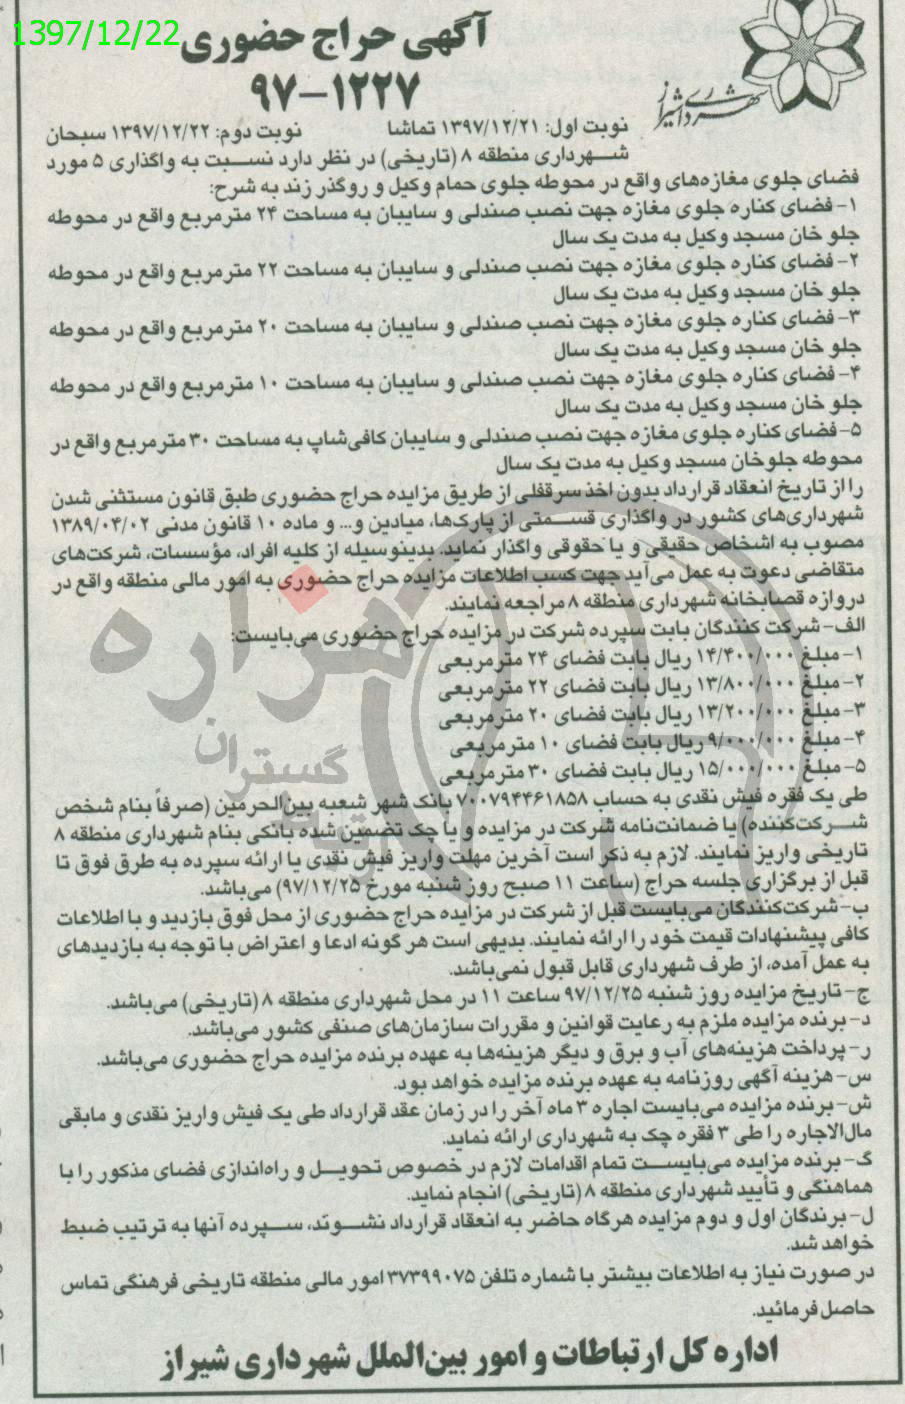 1397/12/22
آگهی حراج حضوری
۹۷-۱۲۲۷
شهرداری شیراز
نوبت اول: ۱۳۹۷/۱۲/۲۱ تماشا نوبت دوم: ۱۳۹۷/۱۲/۲۲ سبحان
شهرداری منطقه ۸ (تاریخی) در نظر دارد نسبت به واگذاری ۵ مورد
فضای جلوی مغازه‌های واقع در محوطه جلوی حمام وکیل و روگذر زند به شرح:
۱- فضای کناره جلوی مغازه جهت نصب صندلی و سایبان به مساحت ۲۴ مترمربع واقع در محوطه
جلو خان مسجد وکیل به مدت یک سال
۲- فضای کناره جلوی مغازه جهت نصب صندلی و سایبان به مساحت ۲۲ مترمربع واقع در محوطه
جلو خان مسجد وکیل به مدت یک سال
۳- فضای کناره جلوی مغازه جهت نصب صندلی و سایبان به مساحت ۲۰ مترمربع واقع در محوطه
جلو خان مسجد وکیل به مدت یک سال
۴- فضای کناره جلوی مغازه جهت نصب صندلی و سایبان به مساحت ۱۰ مترمربع واقع در محوطه
جلو خان مسجد وکیل به مدت یک سال
۵- فضای کناره جلوی مغازه جهت نصب صندلی و سایبان کافی‌شاپ به مساحت ۳۰ مترمربع واقع در
محوطه جلوخان مسجد وکیل به مدت یک سال
را از تاریخ انعقاد قرارداد بدون اخذ سرقفلی از طریق مزایده حراج حضوری طبق قانون مستثنی شدن
شهرداری‌های کشور در واگذاری قسمتی از پارک‌ها، میادین و... و ماده ۱۰ قانون مدنی ۱۳۸۹/۰۴/۰۲
مصوب به اشخاص حقیقی و یا حقوقی واگذار نماید. بدینوسیله از کلیه افراد، مؤسسات، شرکت‌های
متقاضی دعوت به عمل می‌آید جهت کسب اطلاعات مزایده حراج حضوری به امور مالی منطقه واقع در
دروازه قصابخانه شهرداری منطقه ۸ مراجعه نمایند.
الف- شرکت کنندگان بابت سپرده شرکت در مزایده حراج حضوری می‌بایست:
۱- مبلغ ۱۴/۴۰۰/۰۰۰ ریال بابت فضای ۲۴ مترمربعی
۲- مبلغ ۱۳/۸۰۰/۰۰۰ ریال بابت فضای ۲۲ مترمربعی
۳- مبلغ ۱۳/۲۰۰/۰۰۰ ریال بابت فضای ۲۰ مترمربعی
۴- مبلغ ۹/۰۰۰/۰۰۰ ریال بابت فضای ۱۰ مترمربعی
۵- مبلغ ۱۵/۰۰۰/۰۰۰ ریال بابت فضای ۳۰ مترمربعی
طی یک فقره فیش نقدی به حساب ۷۰۰۷۹۴۴۶۱۸۵۸ بانک شهر شعبه بین‌الحرمین (صرفاً بنام شخص
شرکت‌کننده) یا ضمانت‌نامه شرکت در مزایده و یا چک تضمین شده بانکی بنام شهرداری منطقه ۸
تاریخی واریز نمایند. لازم به ذکر است آخرین مهلت واریز فیش نقدی یا ارائه سپرده به طرق فوق تا
قبل از برگزاری جلسه حراج (ساعت ۱۱ صبح روز شنبه مورخ ۹۷/۱۲/۲۵) می‌باشد.
ب- شرکت‌کنندگان می‌بایست قبل از شرکت در مزایده حراج حضوری از محل فوق بازدید و با اطلاعات
کافی پیشنهادات قیمت خود را ارائه نمایند. بدیهی است هر گونه ادعا و اعتراض با توجه به بازدیدهای
به عمل آمده، از طرف شهرداری قابل قبول نمی‌باشد.
ج- تاریخ مزایده روز شنبه ۹۷/۱۲/۲۵ ساعت ۱۱ در محل شهرداری منطقه ۸ (تاریخی) می‌باشد.
د- برنده مزایده ملزم به رعایت قوانین و مقررات سازمان‌های صنفی کشور می‌باشد.
ر- پرداخت هزینه‌های آب و برق و دیگر هزینه‌ها به عهده برنده مزایده حراج حضوری می‌باشد.
س- هزینه آگهی روزنامه به عهده برنده مزایده خواهد بود.
ش- برنده مزایده می‌بایست اجاره ۳ ماه آخر را در زمان عقد قرارداد طی یک فیش واریز نقدی و مابقی
مال‌الاجاره را طی ۳ فقره چک به شهرداری ارائه نماید.
گ- برنده مزایده می‌بایست تمام اقدامات لازم در خصوص تحویل و راه‌اندازی فضای مذکور را با
هماهنگی و تأیید شهرداری منطقه ۸ (تاریخی) انجام نماید.
ل- برندگان اول و دوم مزایده هرگاه حاضر به انعقاد قرارداد نشوند، سپرده آنها به ترتیب ضبط
خواهد شد.
در صورت نیاز به اطلاعات بیشتر با شماره تلفن ۳۷۳۹۹۰۷۵ امور مالی منطقه تاریخی فرهنگی تماس
حاصل فرمائید.
اداره کل ارتباطات و امور بین‌الملل شهرداری شیراز
هزاره
گستران